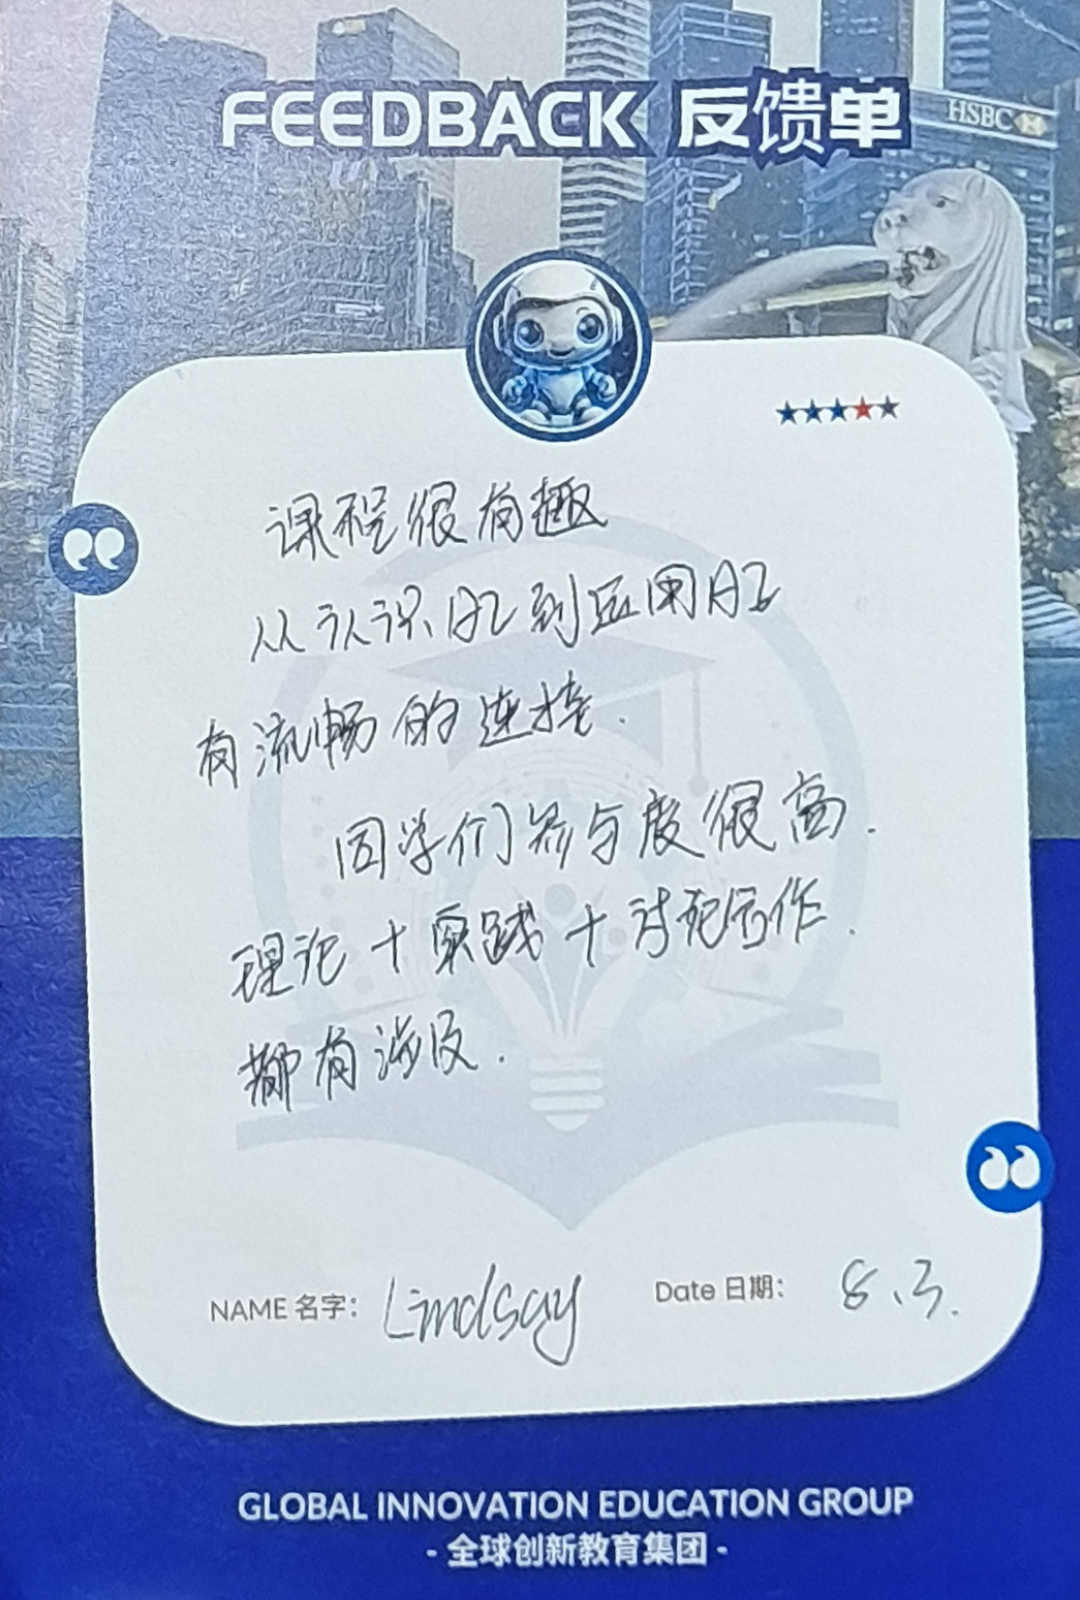 FEEDBACK 反馈单
HSBC
课程很有趣
从认识AI到应用AI
有流畅的连接.
同学们参与度很高.
理论+实践+讨论合作.
都有涉及.
NAME 名字: Lindsay Date 日期: 8.3.
GLOBAL INNOVATION EDUCATION GROUP
- 全球创新教育集团 -